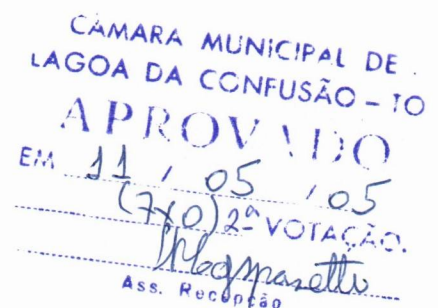 CÂMARA MUNICIPAL DE
LAGOA DA CONFUSÃO – TO
APROVADO
EM 11 / 05 / 05
(7x0) 2ª VOTAÇÃO.
Ass. Recepção